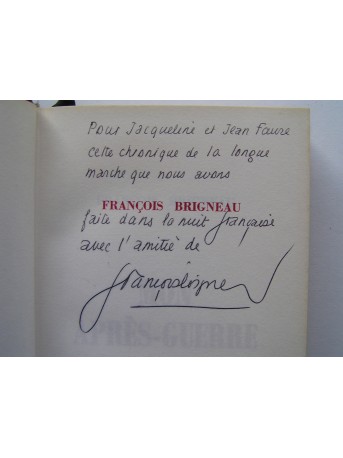 Pour Jacqueline et Jean Faure
cette chronique de la longue
marche que nous avons
FRANÇOIS BRIGNEAU
faite dans la nuit française
avec l'amitié de
François Brigneau
APRÈS-GUERRE